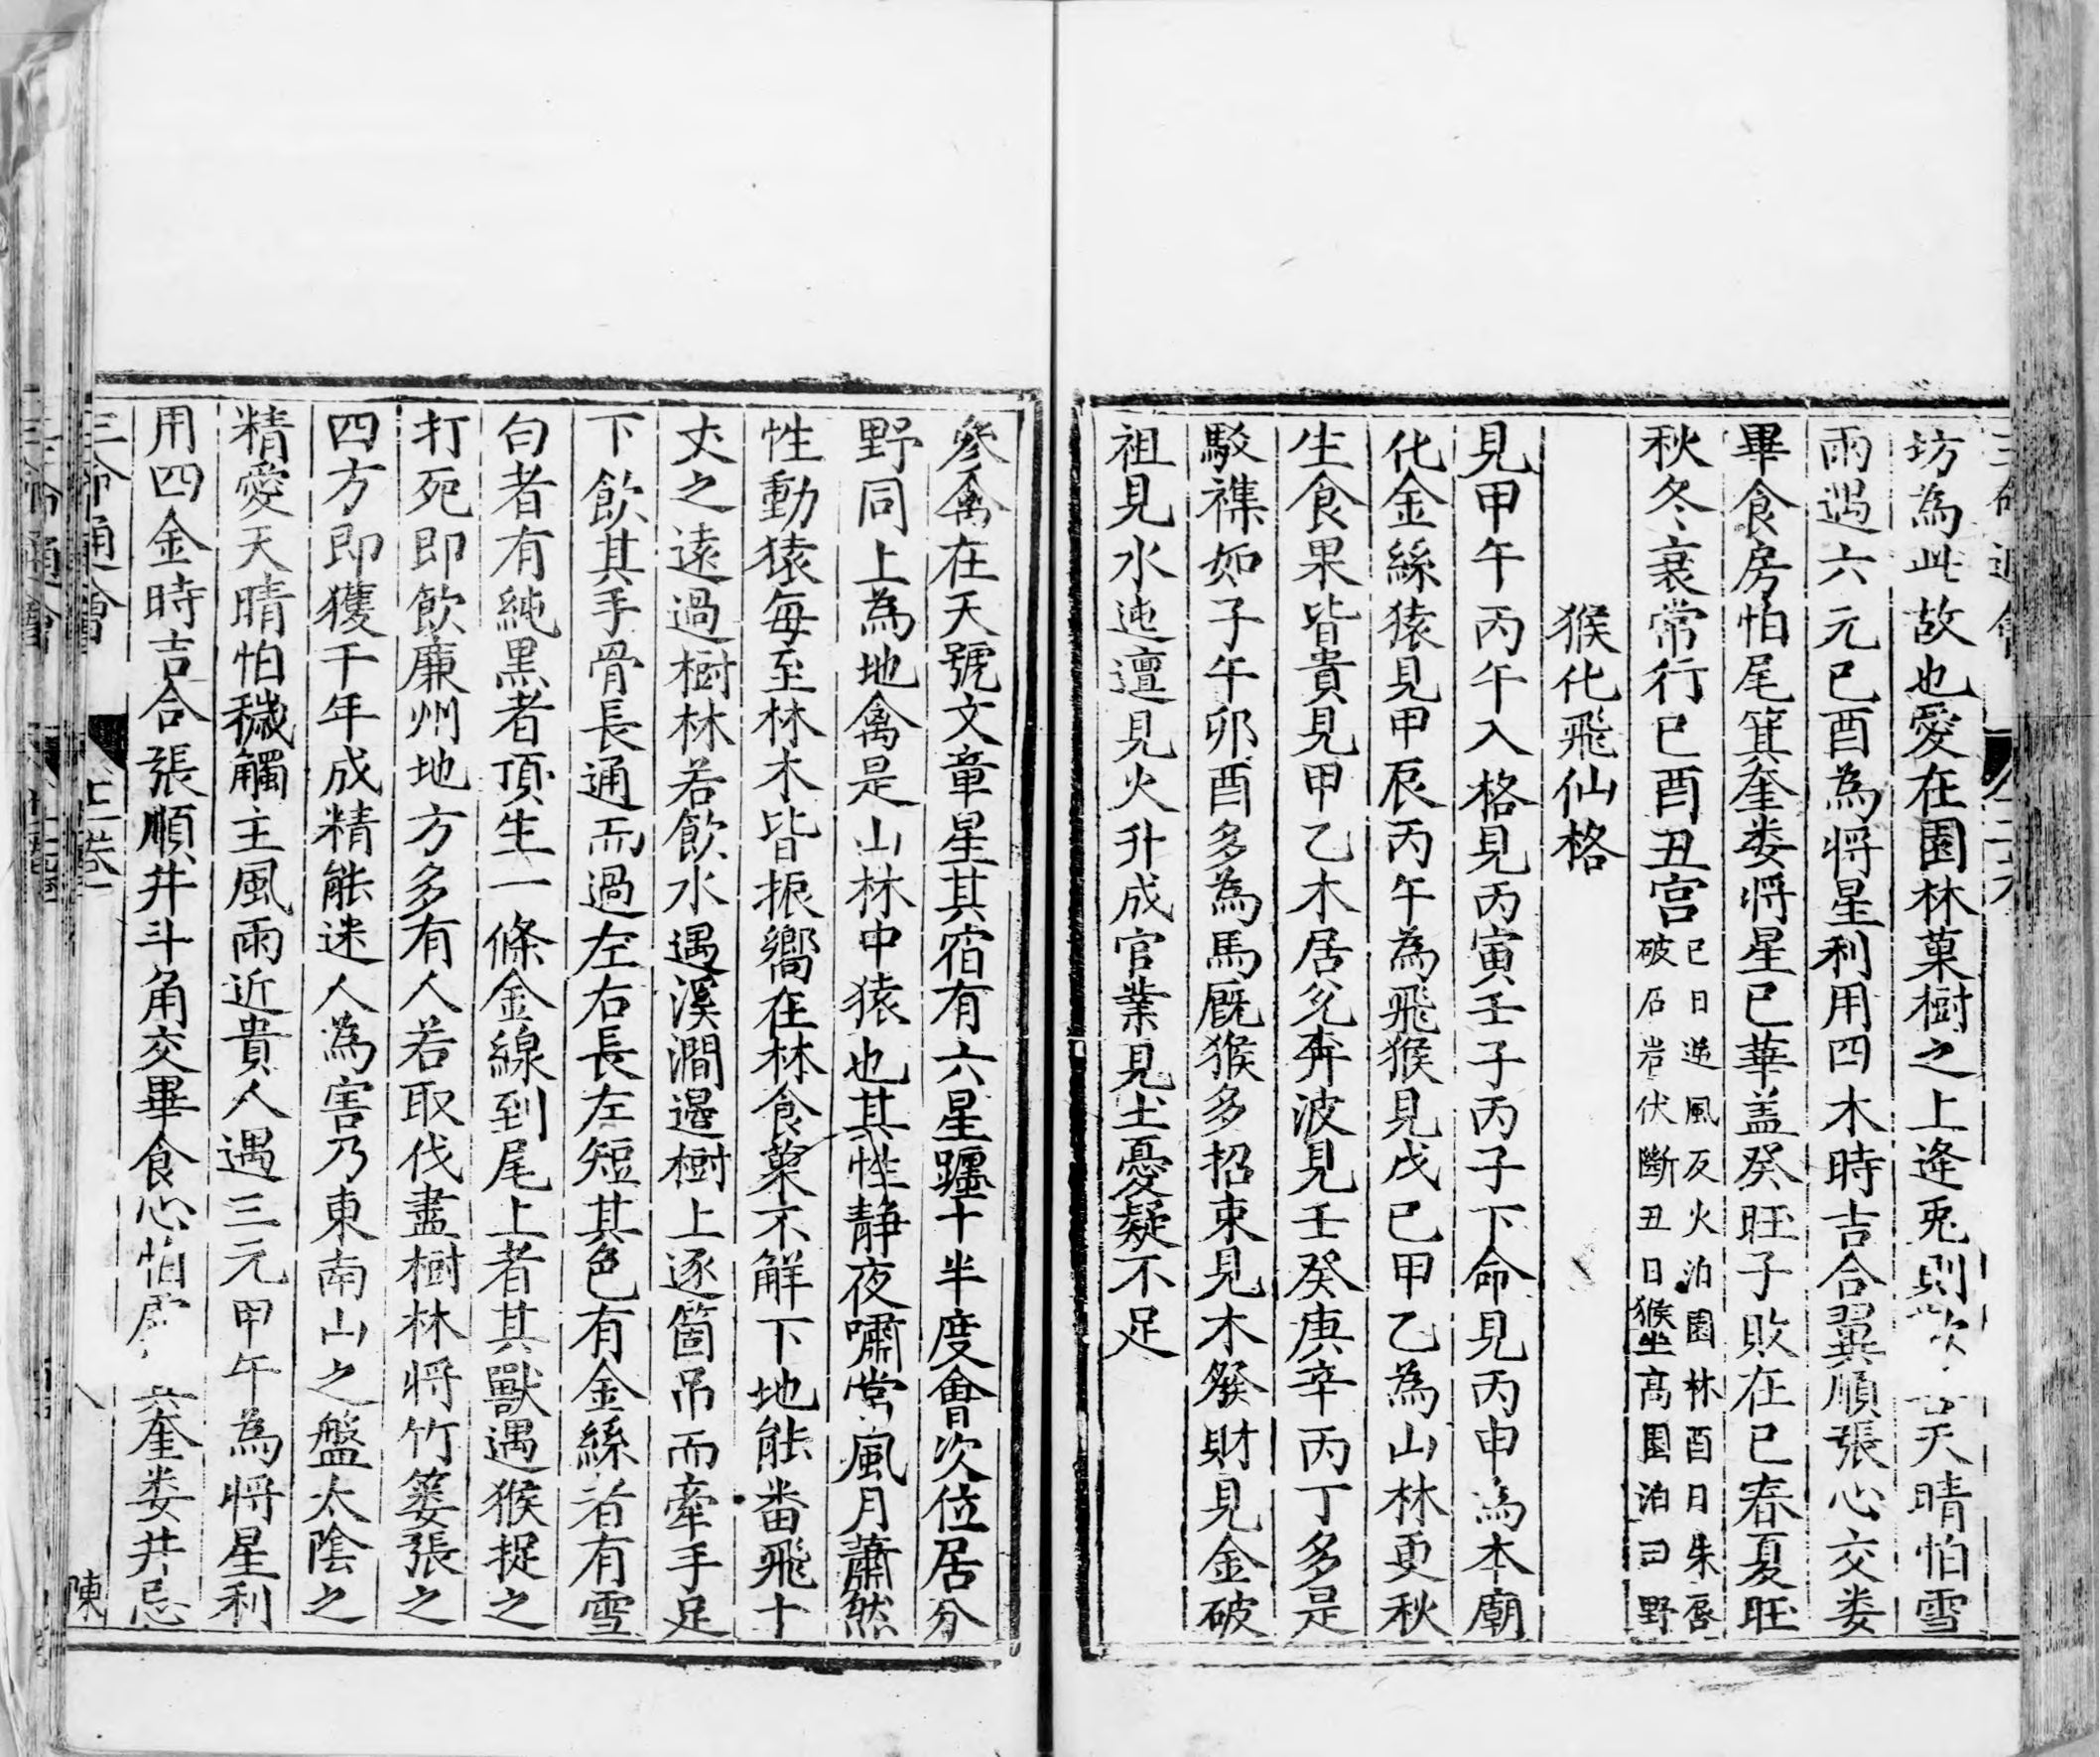 坊為此故也愛在園林菓樹之上逢兎則欢天晴怕雪
雨遇六元已酉為將星利用四木時吉合翼順張心交娄
畢食房怕尾箕奎娄將星巳華盖癸旺子敗在巳春夏旺
秋冬衰常行巳酉丑宫巳日逆風反火泊園林酉日朱唇破石岩伏斷丑日猴坐髙園泊曰野
猴化飛仙格
見甲午丙午入格見丙寅壬子丙子下命見丙申為本廟
化金絲猿見甲辰丙午為飛猴見戊已甲乙為山林更秋
生食果皆貴見甲乙木居兊奔波見壬癸庚辛丙丁多是
駁襍如子午卯酉多為馬厩猴多招束見木發財見金破
祖見水迍邅見火升成官業見土憂疑不足
參禽在天號文章星其宿有六星躔十半度會次位居分
野同上為地禽是山林中猿也其性靜夜嘯常風月蕭然
性動猿每至林木皆振嚮在林食菓不解下地能畨飛十
丈之遠過樹林若飲水遇溪澗邉樹上逐箇吊而牽手足
下飲其手骨長通而過左右長左短其色有金絲者有雪
白者有純黑者頂生一條金線到尾上者其獸遇猴捉之
打死即飲廉州地方多有人若取伐盡樹林將竹篓張之
四方即獲千年成精能迷人為害乃東南山之盤太陰之
精愛天晴怕穢觸主風雨近貴人遇三元甲午為將星利
用四金時吉合張順井斗角交畢食心怕奎娄井忌
三命通會
十一卷
陳